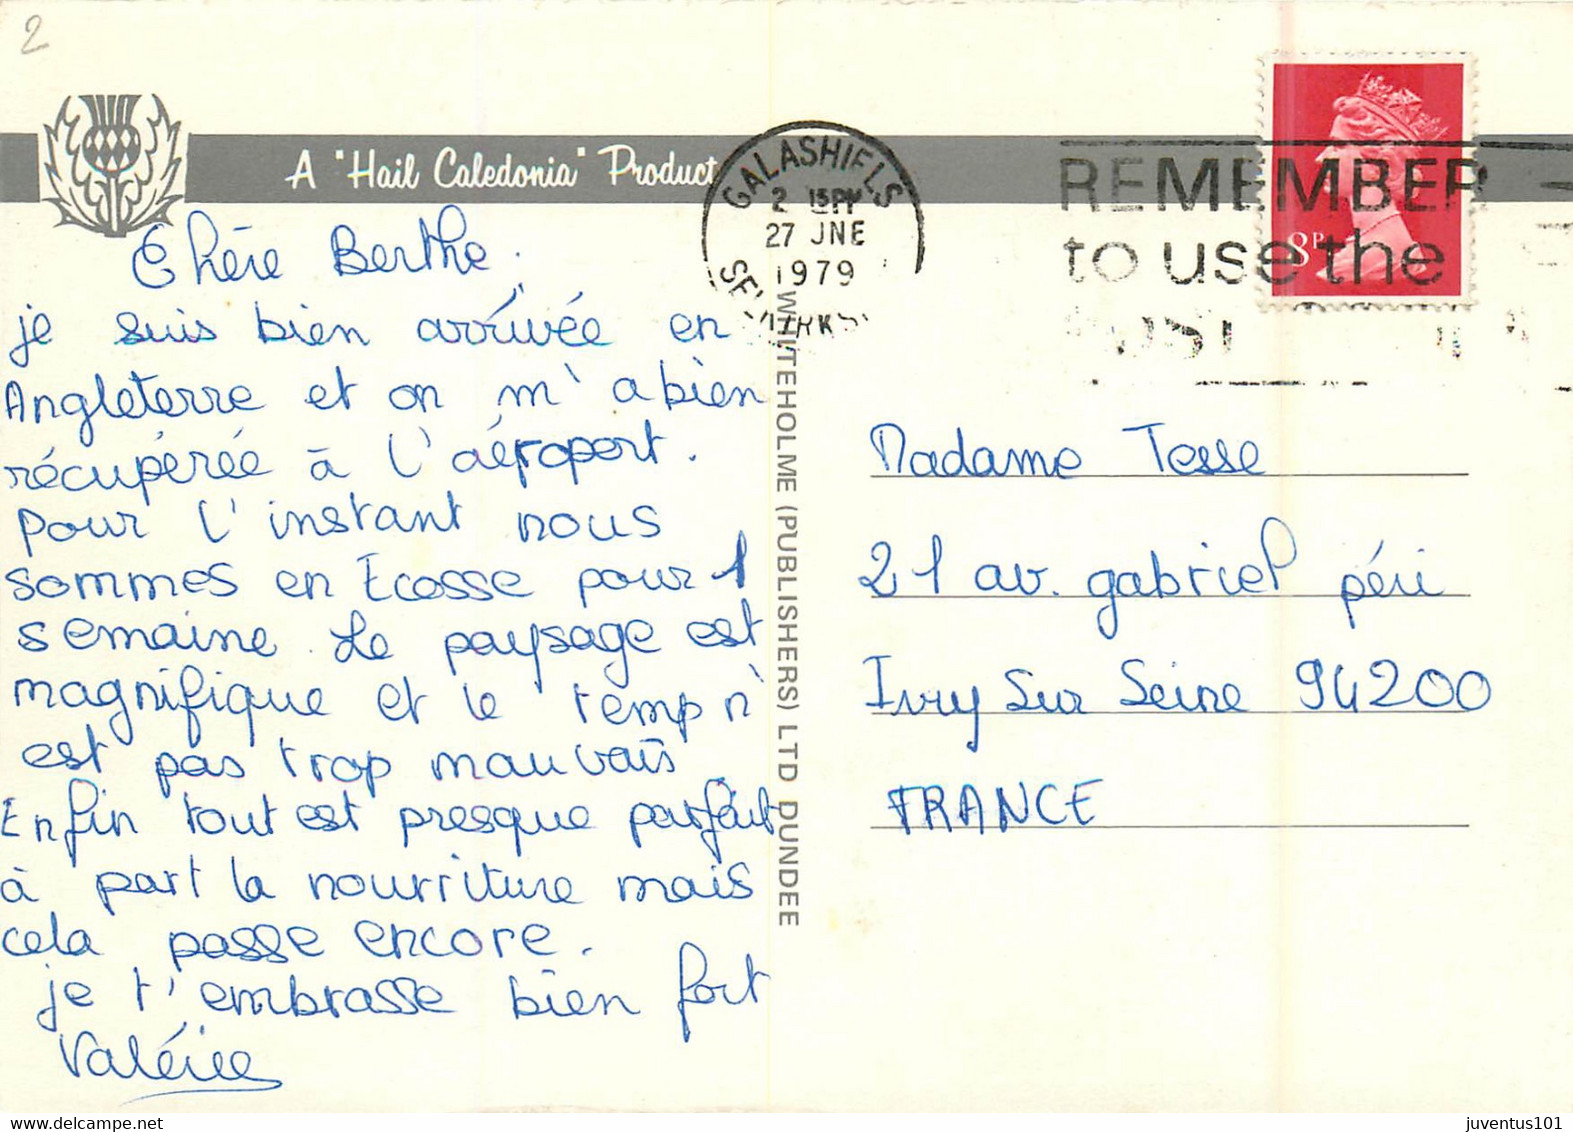 2
A "Hail Caledonia" Product
GALASHIELS
2 15PM
27 JNE
1979
SELKIRKS
REMEMBER
to use the
8P
Chère Berthe,
je suis bien arrivée en
Angleterre et on m'a bien
récupérée à l'aéroport.
Pour l'instant nous
sommes en Ecosse pour 1
semaine. Le paysage est
magnifique et le temp n'
est pas trop mauvais
Enfin tout est presque parfait
à part la nourriture mais
cela passe encore.
je t'embrasse bien fort
Valérie
WHITEHOLME (PUBLISHERS) LTD DUNDEE
Madame Tesse
21 av. gabriel péri
Ivry Sur Seine 94200
FRANCE
juventus101